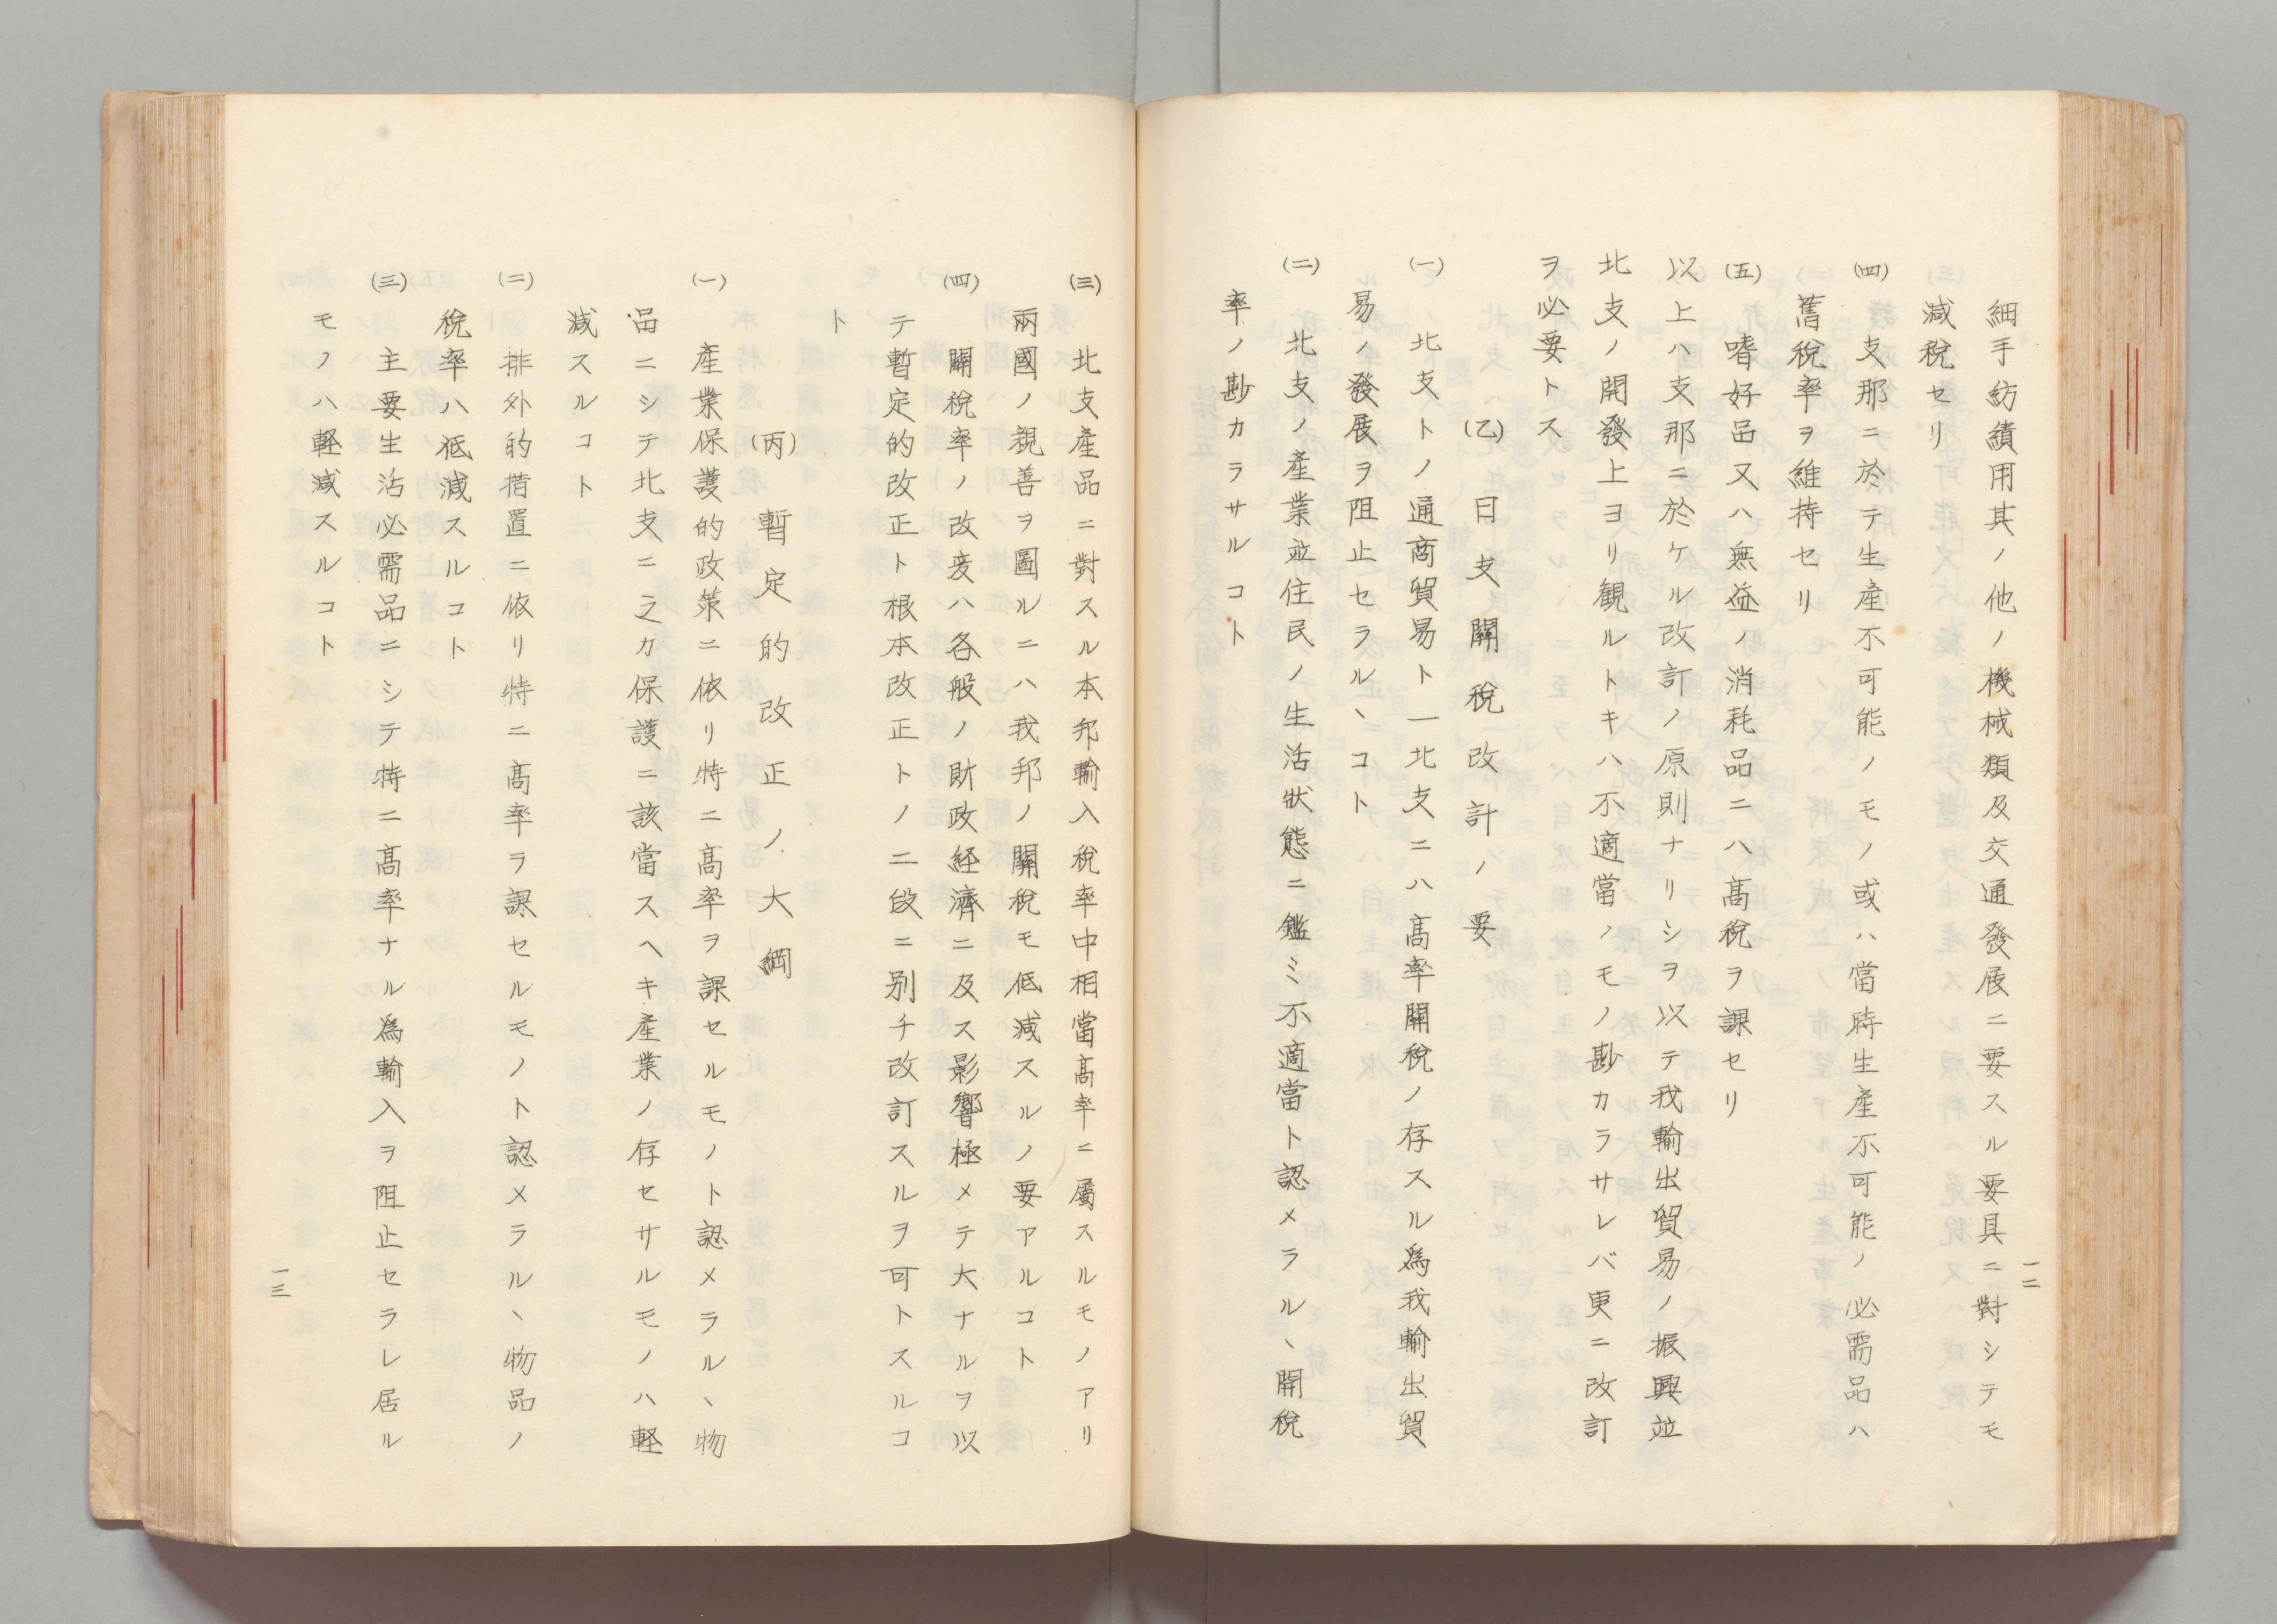 細手紡績用其ノ他ノ機械類及交通發展ニ要スル要具ニ對シテモ
減稅セリ
(四) 支那ニ於テ生産不可能ノモノ或ハ當時生産不可能ノ必需品ハ
舊稅率ヲ維持セリ
(五) 嗜好品又ハ無益ノ消耗品ニハ高稅ヲ課セリ
以上ハ支那ニ於ケル改訂ノ原則ナリシヲ以テ我輸出貿易ノ振興並
北支ノ開發上ヨリ観ルトキハ不適當ノモノ尠カラサレバ更ニ改訂
ヲ必要トス
(乙) 日支關稅改計ノ要
(一) 北支トノ通商貿易ト一北支ニハ高率關稅ノ存スル爲我輸出貿
易ノ發展ヲ阻止セラル、コト
(二) 北支ノ產業並住民ノ生活狀態ニ鑑ミ不適當ト認メラル、開稅
率ノ尠カラサルコト
一二
(三) 北支產品ニ對スル本邦輸入稅率中相當高率ニ屬スルモノアリ
兩國ノ親善ヲ圖ルニハ我邦ノ關稅モ低減スルノ要アルコト
(四) 關稅率ノ改変ハ各般ノ財政経濟ニ及ス影響極メテ大ナルヲ以
テ暫定的改正ト根本改正トノ二段ニ別チ改訂スルヲ可トスルコ
ト
(丙) 暫定的改正ノ大綱
(一) 產業保護的政策ニ依リ特ニ高率ヲ課セルモノト認メラル、物
品ニシテ北支ニ之カ保護ニ該當スヘキ產業ノ存セサルモノハ軽
減スルコト
(二) 排外的措置ニ依リ特ニ高率ヲ課セルモノト認メラル、物品ノ
稅率ハ低減スルコト
(三) 主要生活必需品ニシテ特ニ高率ナル爲輸入ヲ阻止セラレ居ル
モノハ軽減スルコト
一三